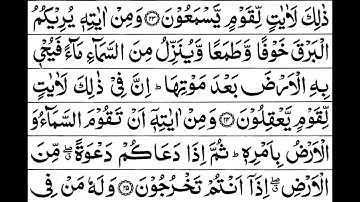 ذٰلِكَ لَاٰیٰتٍ لِّقَوْمٍ یَّسْمَعُوْنَ ﴿۲۳﴾ وَمِنْ اٰیٰتِهٖ یُرِیْكُمُ
الْبَرْقَ خَوْفًا وَّطَمَعًا وَّیُنَزِّلُ مِنَ السَّمَآءِ مَآءً فَیُحْیٖ
بِهِ الْاَرْضَ بَعْدَ مَوْتِهَا ؕ اِنَّ فِیْ ذٰلِكَ لَاٰیٰتٍ
لِّقَوْمٍ یَّعْقِلُوْنَ ﴿۲۴﴾ وَمِنْ اٰیٰتِهٖۤ اَنْ تَقُوْمَ السَّمَآءُ وَ
الْاَرْضُ بِاَمْرِهٖ ؕ ثُمَّ اِذَا دَعَاكُمْ دَعْوَةً ۖۗ مِّنَ
الْاَرْضِ ۖۗ اِذَاۤ اَنْتُمْ تَخْرُجُوْنَ ﴿۲۵﴾ وَلَهٗ مَنْ فِی